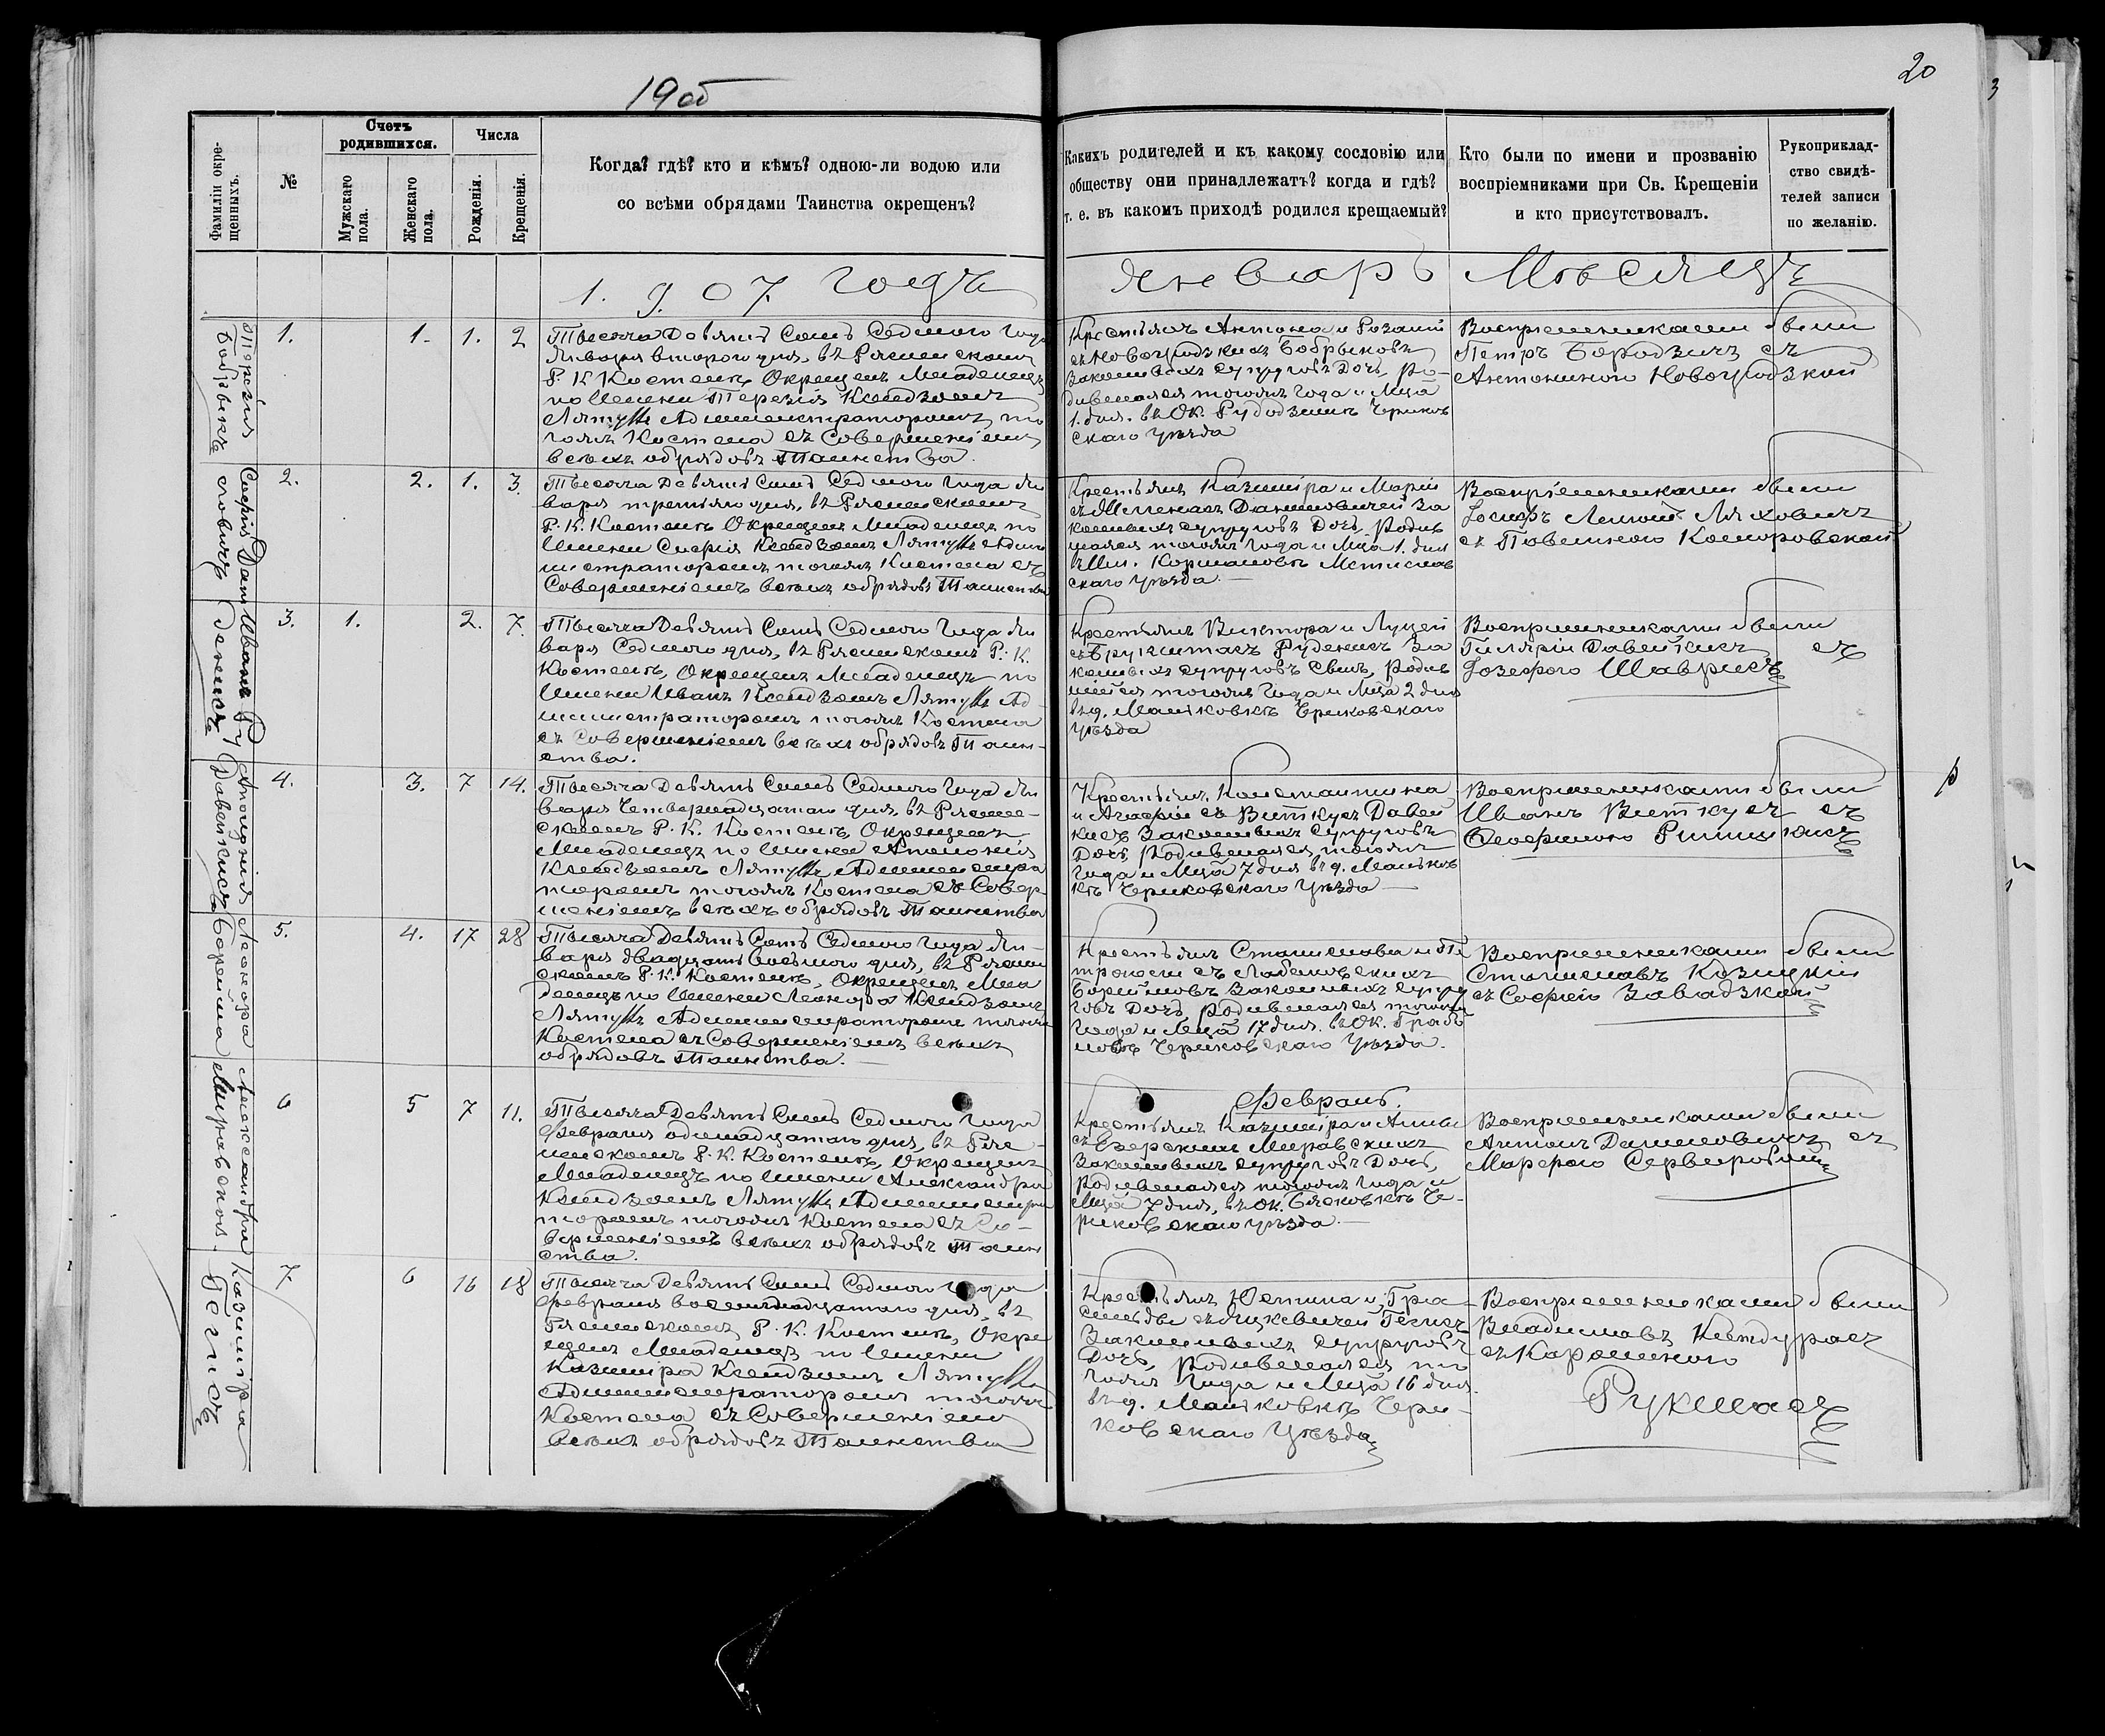 19об
20
3
Фамиліи окре-
щенныхъ.
№
Счетъ
родившихся.
Мужскаго
пола.
Женскаго
пола.
Числа
Рожденія.
Крещенія.
Когда? гдѣ? кто и кѣмъ? одною-ли водою или
со всѣми обрядами Таинства окрещенъ?
Какихъ родителей и къ какому сословію или
обществу они принадлежатъ? когда и гдѣ?
т. е. въ какомъ приходѣ родился крещаемый?
Кто были по имени и прозванію
воспріемниками при Св. Крещеніи
и кто присутствовалъ.
Рукоприклад-
ство свидѣ-
телей записи
по желанію.
1.9.07. годъ
Январь Мѣсяцъ
Терезія
Бобрыкъ
1.
1.
1.
2
Тысяча Девять Сотъ Седмого Года
Января второго дня, въ Рясненскомъ
Р. К. Костелѣ, Окрещенъ Младенецъ
по Имени Терезія Ксендзомъ
Администраторомъ то
гожъ Костела съ Совершеніемъ
всѣхъ обрядовъ Таинства.
Крестьянъ Антона и Розаліи
съ Новогродзкихъ Бобрыковъ
Законныхъ супруговъ Дочь, ро-
дившаяся тогожъ года и Мца
1. дня. въ Ок. Чериков
скаго уѣзда
Воспріемниками были
Петръ Бородзичъ съ
Антониною Новогродзкой
Софія Дани
ловичъ
2.
2.
1.
3.
Тысяча Девять Сотъ Седмого Года Ян
варя третьяго дня, въ Рясненскомъ
Р. К. Костелѣ Окрещенъ Младенецъ по
Имени Софія Ксендзомъ Адми
нистраторомъ тогожъ Костела съ
Совершеніемъ всѣхъ обрядовъ Таинства
Крестьянъ Казимира и Маріи
За
конныхъ супруговъ Дочь, Родив
шаяся тогожъ Года и Мца 1. дня
въ Им. Кормановѣ Мстислав
скаго уѣзда.
Воспріемниками были
Іосифъ Ляховичъ
съ Павелиною Коморовской
Иванъ Ру
денисъ
3.
1.
2.
7.
Тысяча Девять Сотъ Седмого Года Ян
варя Седмого дня, въ Рясненскомъ Р. К.
Костелѣ, Окрещенъ Младенецъ по
Имени Иванъ Ксендзомъ Ад
министраторомъ тогожъ Костела
съ Совершеніемъ всѣхъ обрядовъ Таин-
ства.
Крестьянъ Виктора и Луціи
Руденисъ За
конныхъ супруговъ Сынъ, родив
шійся тогожъ Года и Мца 2 дня
въ д. Маліковкѣ Чериковскаго
уѣзда
Воспріемниками были
Гилярій Давейнисъ съ
Іозефою Шаврисъ
Аполонія
Давейнисъ
4.
3.
7
14.
Тысяча Девять Сотъ Седмого Года Ян
варя Четвернадцатаго дня, въ Ряснен-
скомъ Р. К. Костелѣ Окрещенъ
Младенецъ по Имени Аполонія
Ксендзомъ Администра
торомъ тогожъ Костела съ Совер-
шеніемъ всѣхъ обрядовъ Таинства
Крестьянъ, Константина
и съ Виткусъ Давей
нисъ Законныхъ супруговъ
Дочь, Родившаяся, тогожъ
Года и Мца 7 дня въ д. Маліков
кѣ Чериковскаго Уѣзда
Воспріемниками были
Иванъ Виткусъ съ
Теофилею
Леонора
Борейша
5.
4.
17
28
Тысяча Девять Сотъ Седмого Года Ян-
варя двадцать восьмого дня, въ Ряснен
скомъ Р. К. Костелѣ, Окрещенъ Мла
денецъ по Имени Леонора Ксендзомъ
Администраторомъ тогожъ
Костела съ Совершеніемъ всѣхъ
обрядовъ Таинства.
Крестьянъ Станислава и Пе
тронели съ
Законныхъ супру
говъ Дочь, родившаяся тогожъ
Года и Мца 17 дня. въ Ок.
Чериковскаго Уѣзда.
Воспріемниками были
Станиславъ Козицкій
съ Софіею Завадзкой
Александра
Миравская.
6
5
7
11.
Тысяча Девять Сотъ Седмого Года
Февраля одинадцатаго дня, въ Ряс-
ненскомъ Р. К. Костелѣ, Окрещенъ
Младенецъ по Имени Александра
Ксендзомъ Администра
торомъ тогожъ Костела съ Со-
вершеніемъ всѣхъ обрядовъ Таин
ства.
Февраль.
Крестьянъ Казимира и Анны
съ Езерскихъ Миравскихъ
Законныхъ супруговъ Дочь,
Родившаяся тогожъ Года и
Мца 7 дня, въ Ок. Че-
риковскаго уѣзда.
Воспріемниками были
Антонъ Даниловичъ съ
Марфою
Казимира
Гегнисъ
7.
6
16
18
Тысяча Девять Сотъ Седмого Года
Февраля восемнадцатаго дня, въ
Рясненскомъ Р. К. Костелѣ, Окре
щенъ Младенецъ по Имени
Казимира Ксендзомъ
Администраторомъ тогожъ
Костела съ Совершеніемъ
всѣхъ обрядовъ Таинства
Крестьянъ Юстина и
Законныхъ супруговъ
Дочь, Родившаяся то
гожъ Года и Мца 16 дня.
въ д. Маліковкѣ Чери-
ковскаго Уѣзда
Воспріемниками были
Владиславъ
съ Каролиною
Рукшасъ